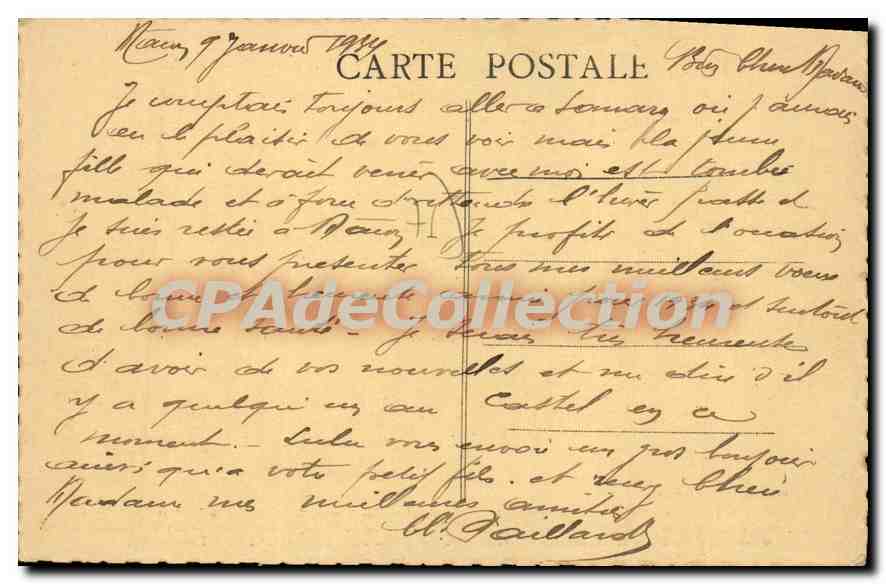 9 Janvier 1934
CARTE POSTALE
Chère Madame
Je comptais toujours aller à où j'aurais
eu le plaisir de vous voir mais la jeune
fille qui devait venir avec moi est tombée
malade et à force d'attendre l'hiver passe et
je suis restée à Je profite de l'occasion
pour vous présenter tous mes meilleurs voeux
de bonne et heureuse année pour 1934 et surtout
de bonne santé - Je serais très heureuse
d'avoir de vos nouvelles et me dire s'il
y a quelqu'un au Castel en ce
moment. - Lulu vous envoie un gros bonjour
ainsi qu'à votre petit fils. et chère
Madame mes meilleures amitiés
Paillard
CPAdeCollection.com